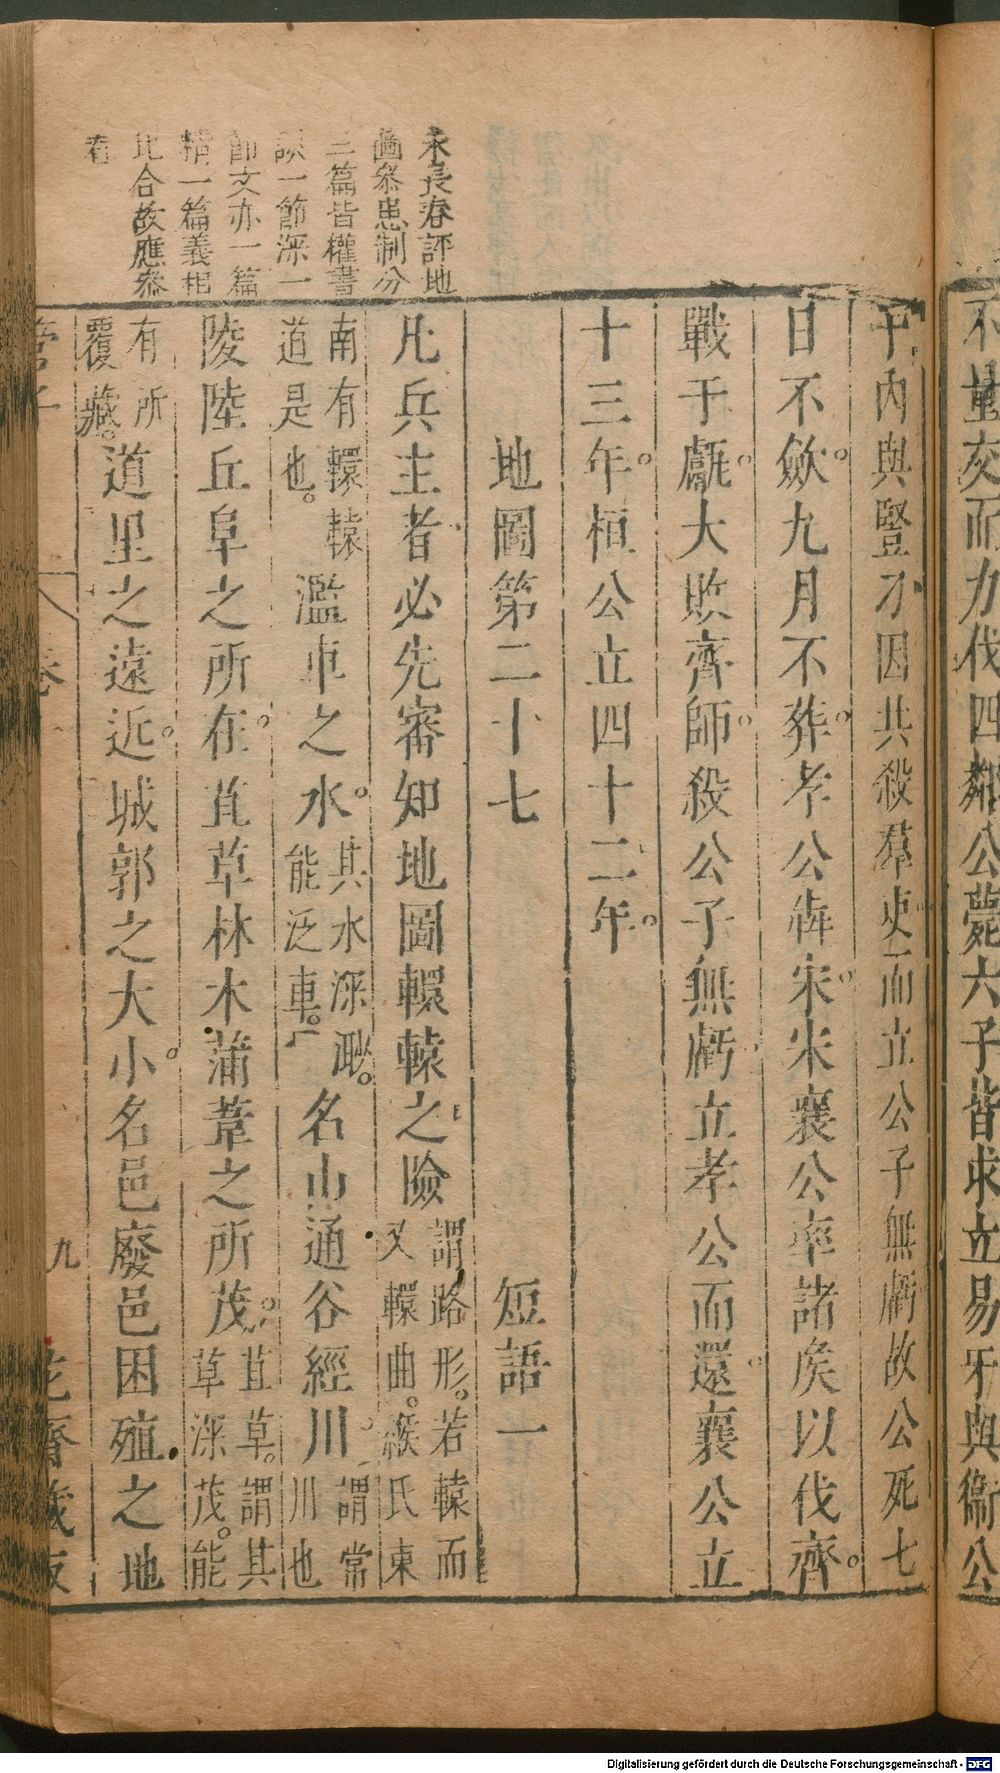 不量交而力伐四鄰公薨六子皆求立易牙與衞公
于內與豎刁因共殺羣吏而立公子無虧故公死七
日不斂九月不葬孝公犇宋宋襄公率諸矦以伐齊
戰于甗大敗齊師殺公子無虧立孝公而還襄公立
十三年桓公立四十二年
地圖第二十七 短語一
凡兵主者必先審知地圖轘轅之險謂路形若轅而又轘曲緱氏東
南有轘轅道是也濫車之水其水深渺能泛車名山通谷經川謂常川也
陵陸丘阜之所在苴草林木蒲葦之所茂苴草謂其草深茂能
有所覆藏道里之遠近城郭之大小名邑廢邑困殖之地
朱長春評地
圖參患制分
三篇皆權書
談一節深一
節文亦一篇
精一篇義相
比合故應參
看
管子
卷
九
花齋藏板
Digitalisierung gefördert durch die Deutsche Forschungsgemeinschaft - DFG